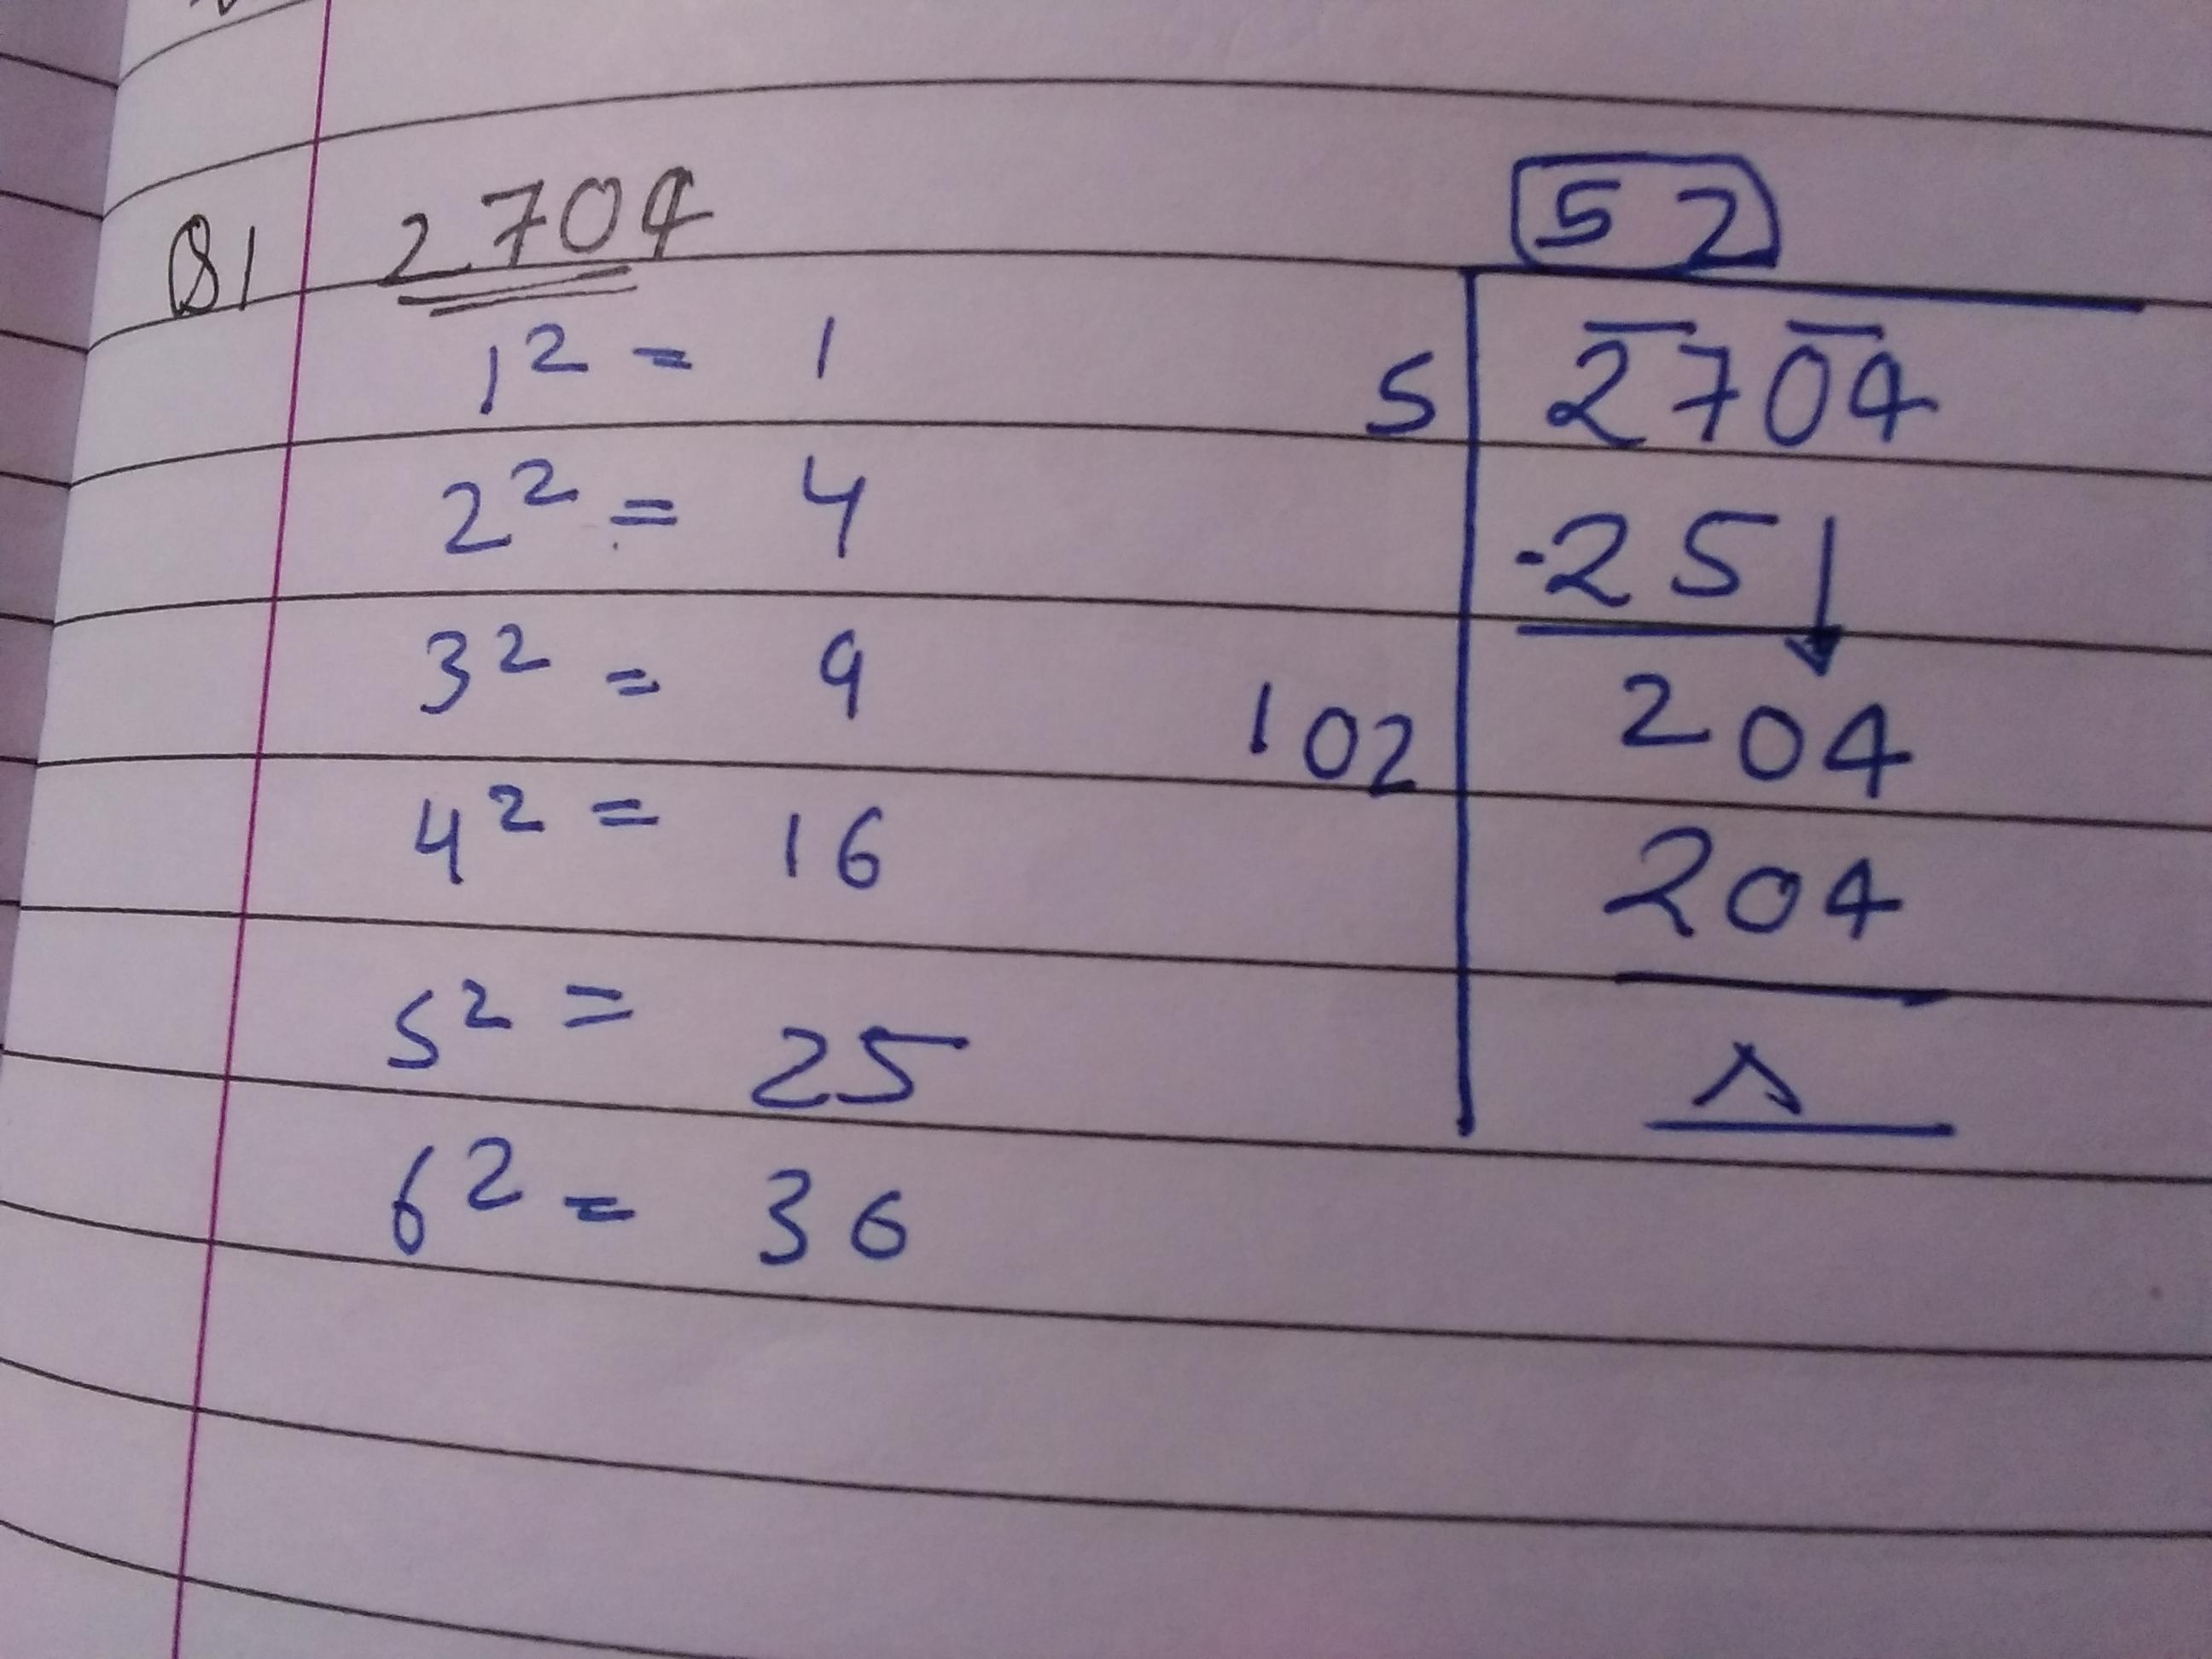 Q1 2704
1² = 1
2² = 4
3² = 9
4² = 16
5² = 25
6² = 36
52
5 2704
-25↓
102 204
204